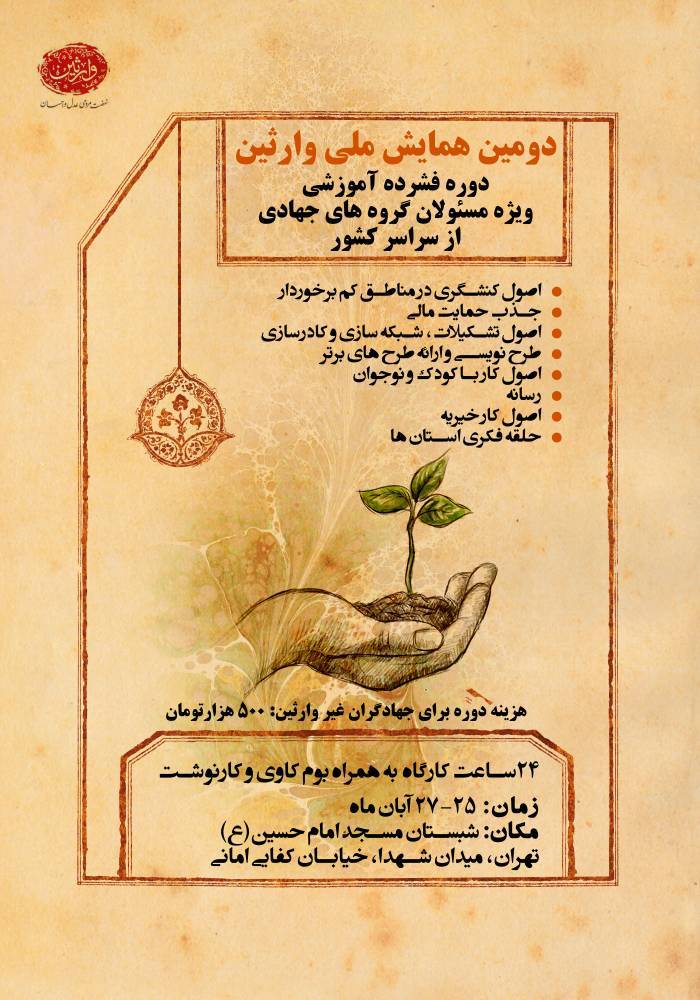 وارثین
نهضت مردمی عدل و احسان
دومین همایش ملی وارثین
دوره فشرده آموزشی
ویژه مسئولان گروه های جهادی
از سراسر کشور
اصول کنشگری در مناطق کم برخوردار
جذب حمایت مالی
اصول تشکیلات، شبکه سازی و کادرسازی
طرح نویسی و ارائه طرح های برتر
اصول کار با کودک و نوجوان
رسانه
اصول کار خیریه
حلقه فکری استان ها
هزینه دوره برای جهادگران غیر وارثین: ۵۰۰ هزار تومان
۲۴ ساعت کارگاه به همراه بوم کاوی و کارنوشت
زمان: ۲۵-۲۷ آبان ماه
مکان: شبستان مسجد امام حسین (ع)
تهران، میدان شهدا، خیابان کفایی امانی